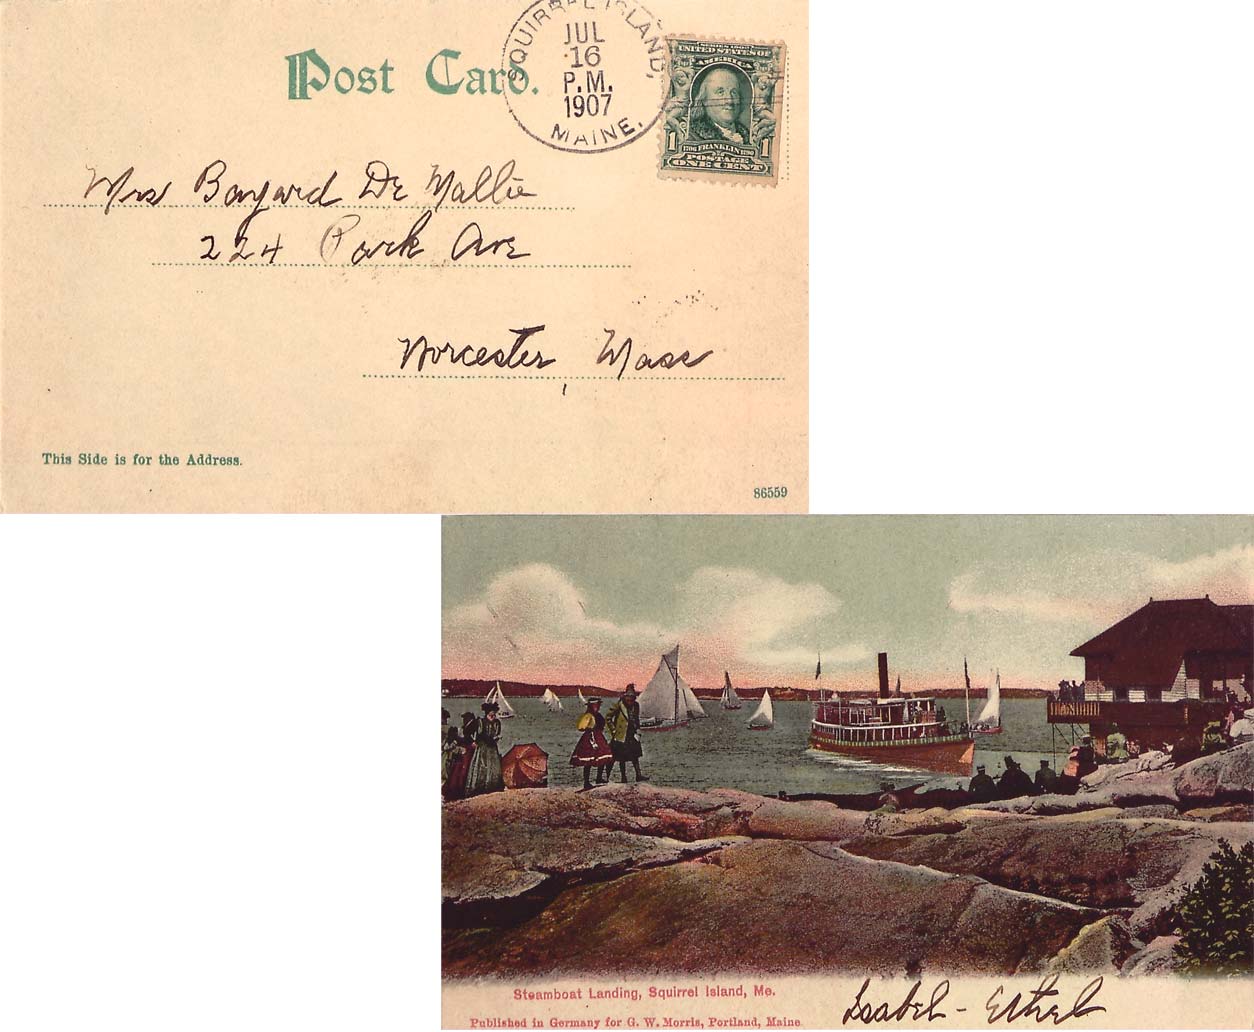 Post Card.
SQUIRREL ISLAND,
JUL
16
P.M.
1907
MAINE.
SERIES 1902
UNITED STATES OF
AMERICA
1 1706 FRANKLIN 1790 1
POSTAGE
ONE CENT
Mrs Bayard De Mallie
224 Park Ave
Worcester, Mass
This Side is for the Address.
86559
Steamboat Landing, Squirrel Island, Me.
Isabel - Ethel
Published in Germany for G. W. Morris, Portland, Maine